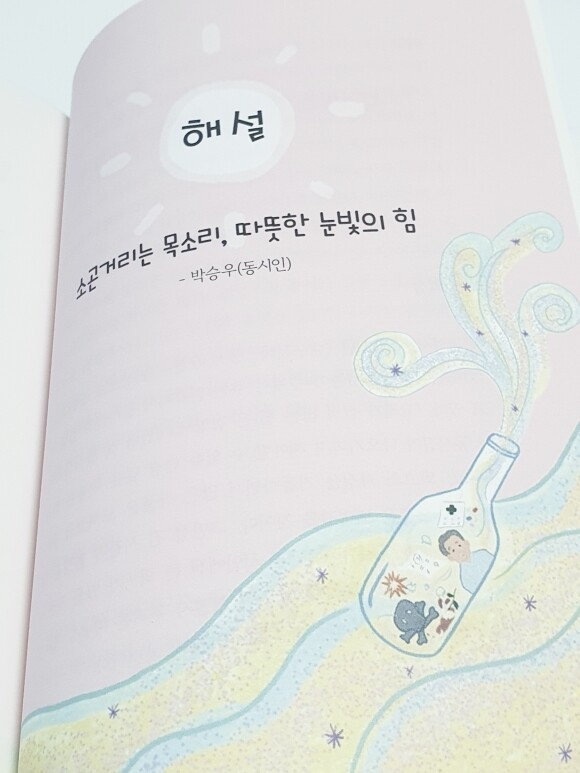 해설
소곤거리는 목소리, 따뜻한 눈빛의 힘
- 박승우(동시인)